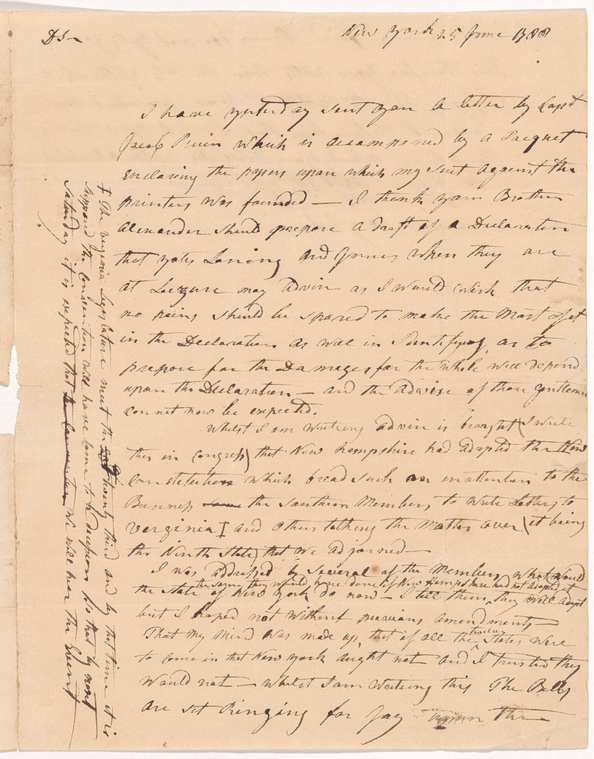 New York 25 June 1788
DSr
I have yesterday sent you a letter by Capt
Jacob which is accompanied by a Pacquet
enclosing the papers upon which my Suit against the
printers was founded — I think your Brother
Alexander should prepare a draft of a Declaration
that yates Lansing and Jones when they are
at Leizure may advise as I would wish that
no pains should be spared to make the Most of it
in the Declaration as well in Identifying as to
prepare for the Damages for the whole will depend
upon the Declaration — and the advise of those Gentlemen
can not now be expected.
Whilst I am writeing advise is brought (I write
this in congress) that New hampshire had adopted the New
constetution which bread such an inattention to the
Business the Southern Members to write Letters to
Verginia ‡ and others talking the Matter over (it being
the Ninth State) that we adjourned —
I was addressed by Several of the Members, what would
the State of New York do now — I tell them they will adopt
the same they would have done if New hampshire had not adopted it
but I hoped not without previous amendments —
That my Mind was made up, that if all the twelve States were
to come in that New York ought not and I trusted they
would not — whilst I am writeing this The Bells
are set Ringing for Joy upon the
‡ The Verginia Legislature meet the twenty third and by that time it is
supposed the Convention will have come to a decision so that by next
Saturday it is expected that we will hear the Event